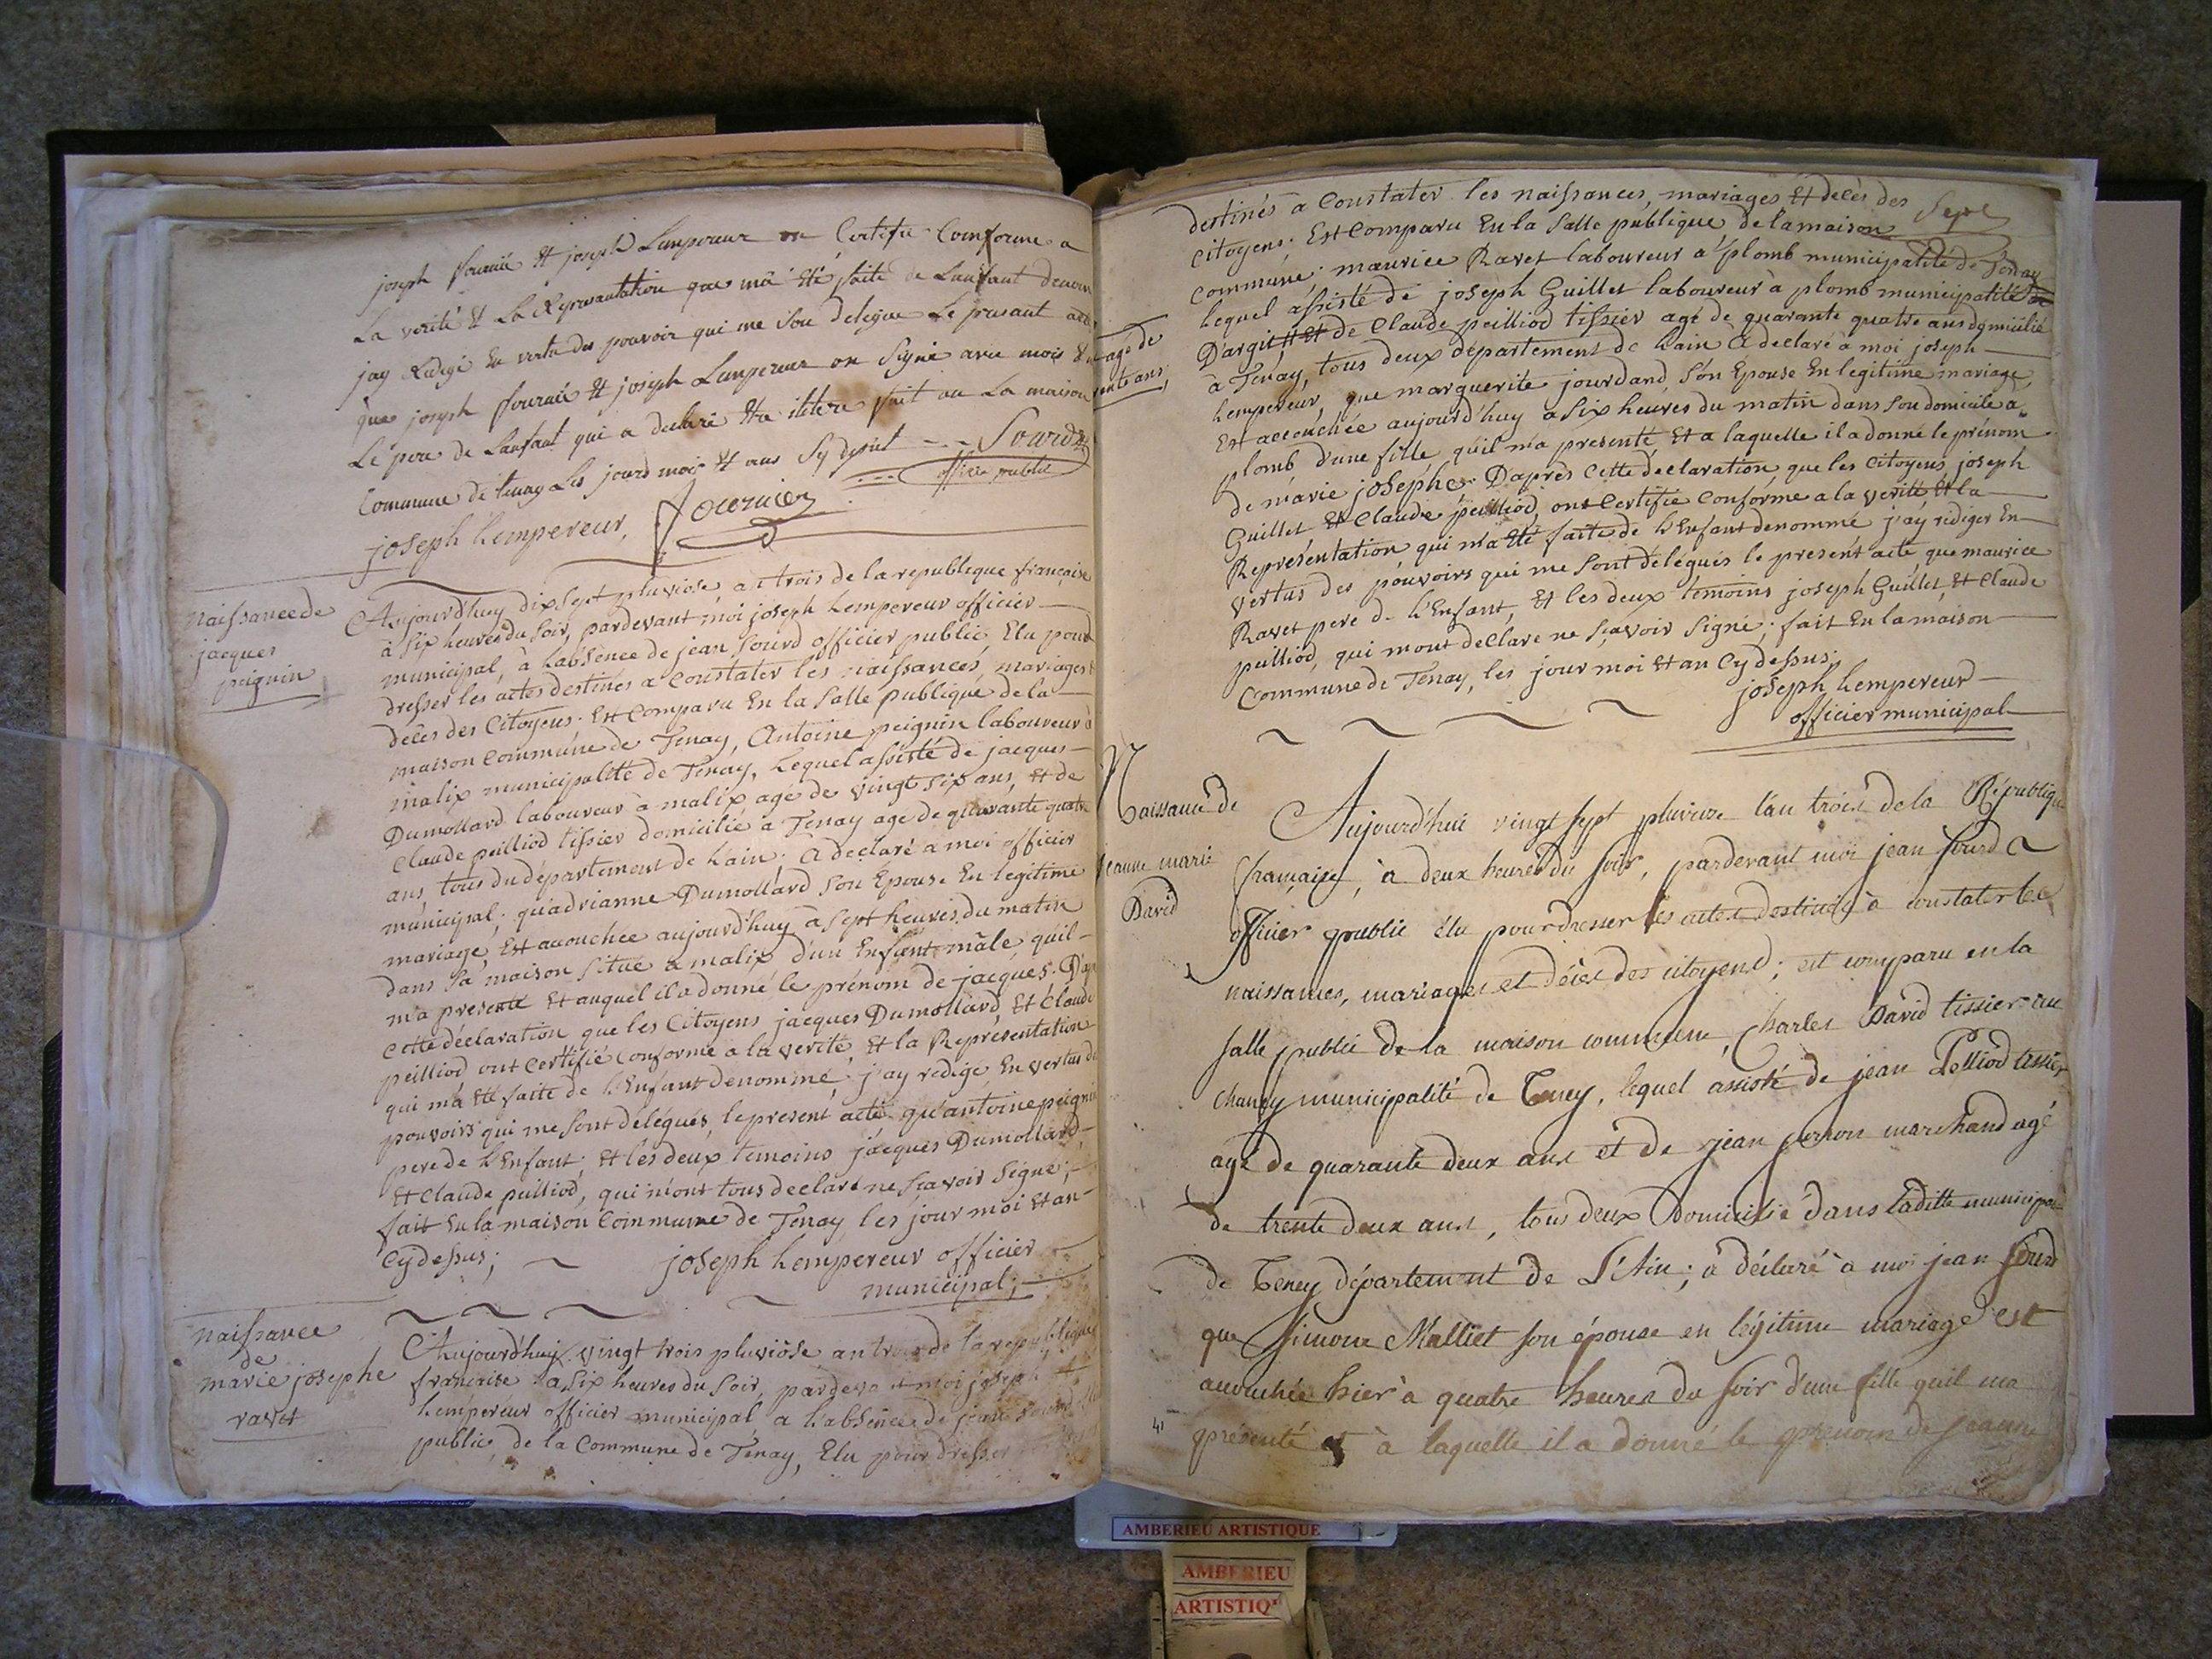 joseph fournié & joseph Lempereur on Certifié Comforme a
La verité & La Represantation qui mà été faite de Lanfant denom
jay Redigé En vertu des pouvoir qui me son delegue Le presant acte
que joseph fournié & joseph Lempereur on Signé avec mois &
Le pere de Lanfant qui a declaré Etre iletere fait au La maison
Commune de tenay Les jourd mois & ans Sy desut - - - Sourd
officie public
joseph Lempereur, fournier
naissance de
jacques
peignin
Aujourdhuy dixsept pluviose, an trois de la republique française
à six heures du soir, pardevant moi joseph Lempereur officier
municipal, à Labsence de jean Sourd officier public Elu pour
dresser les actes destinés a Constater les naissances, mariages &
décès des Citoyens. Est Comparu En la Salle publique de la
maison Commune de Tenay, Antoine peignin laboureur à
malix municipalité de Tenay, Lequel assisté de jacques
Dumollard laboureur à malix agé de vingt six ans, et de
Claude peilliod tissier domicilié à Tenay agé de quarante quatre
ans, tous du département de L'ain. A declaré a moi officier
municipal, qu'adrianne Dumollard son Epouse En legitime
mariage, Est accouchée aujourd'huy à sept heures du matin
dans sa maison située à malix d'un Enfant mâle quil
m'a presenté Et auquel il a donné le prénom de jacques. D'apr
cette déclaration que les Citoyens jacques Dumollard, Et Claude
peilliod ont certifié conforme a la verité, Et la Représentation
qui m'a été faite de L'Enfant denommé, j'ay redigé En vertus des
pouvoirs qui me sont délégués, le present acte qu'antoine peignin
pere de L'Enfant, Et les deux temoins jacques Dumollard
Et Claude peilliod, qui m'ont tous declaré ne sçavoir signé;
fait En la maison Commune de Tenay les jour moi Et an
Cy dessus; joseph Lempereur officier
municipal;
naissance
de
marie josephe
ravet
Aujourd'huy vingt trois pluviôse an trois de la republique
francaise à six heures du soir, pardevant moi joseph
Lempereur officier municipal a L'absence de jean Sourd
public, de la Commune de Tenay, Elu pour dresser
Sept
destinés a Constater les naissances, mariages Et décès des
Citoyens. Est Comparu En la Salle publique de la maison
Commune, maurice Ravet laboureur à plomb municipalité de
Lequel assisté de joseph Guillet laboureur à plomb municipalité
agé de
trente ans
Dargit Et de Claude peilliod tissier agé de quarante quatre ans domicilié
à Tenay, tous deux département de L'ain A declaré à moi joseph
Lempereur, que marguerite jourdand, son Epouse En legitime mariage,
Est accouchée aujourd'huy a six heures du matin dans son domicile a
plomb d'une fille qu'il m'a presenté Et a laquelle il a donné le prénom
de marie josephe. D'après cette déclaration que les Citoyens joseph
Guillet Et Claude peilliod, ont Certifié Conforme a la verité Et la
Représentation qui m'a été faite de L'Enfant denommé j'ay rediger En
vertus des pouvoirs qui me sont délégués le present acte que maurice
Ravet pere de L'Enfant, Et les deux temoins joseph Guillet, Et Claude
peilliod, qui mont declaré ne sçavoir Signé; fait En la maison
Commune de Tenay, les jour moi Et an Cy dessus;
joseph Lempereur
officier municipal
Naissance de
jeanne marie
David
Aujourd'hui vingt sept pluviose l'an trois de la République
française, à deux heures du soir, pardevant moi jean Sourd
officier public élu pour dresser les actes destinés à constater les
naissances, mariages et décès des citoyens; est comparu en la
salle public de la maison commune, Charles David tissier au
Chaney municipalité de Teney, lequel assisté de jean Pelliod tissier
agé de quarante deux ans et de jean perron marchand agé
de trente deux ans, tous deux Domicilié dans laditte municipa
de Teney département de l'Ain; a déclaré à moi jean Sourd
que Simone Malliet son épouse en légitime mariage est
accouchée hier à quatre heures du soir d'une fille quil ma
présenté et à laquelle il a donné le prenom de jeanne
AMBERIEU ARTISTIQUE
AMBERIEU
ARTISTIQ